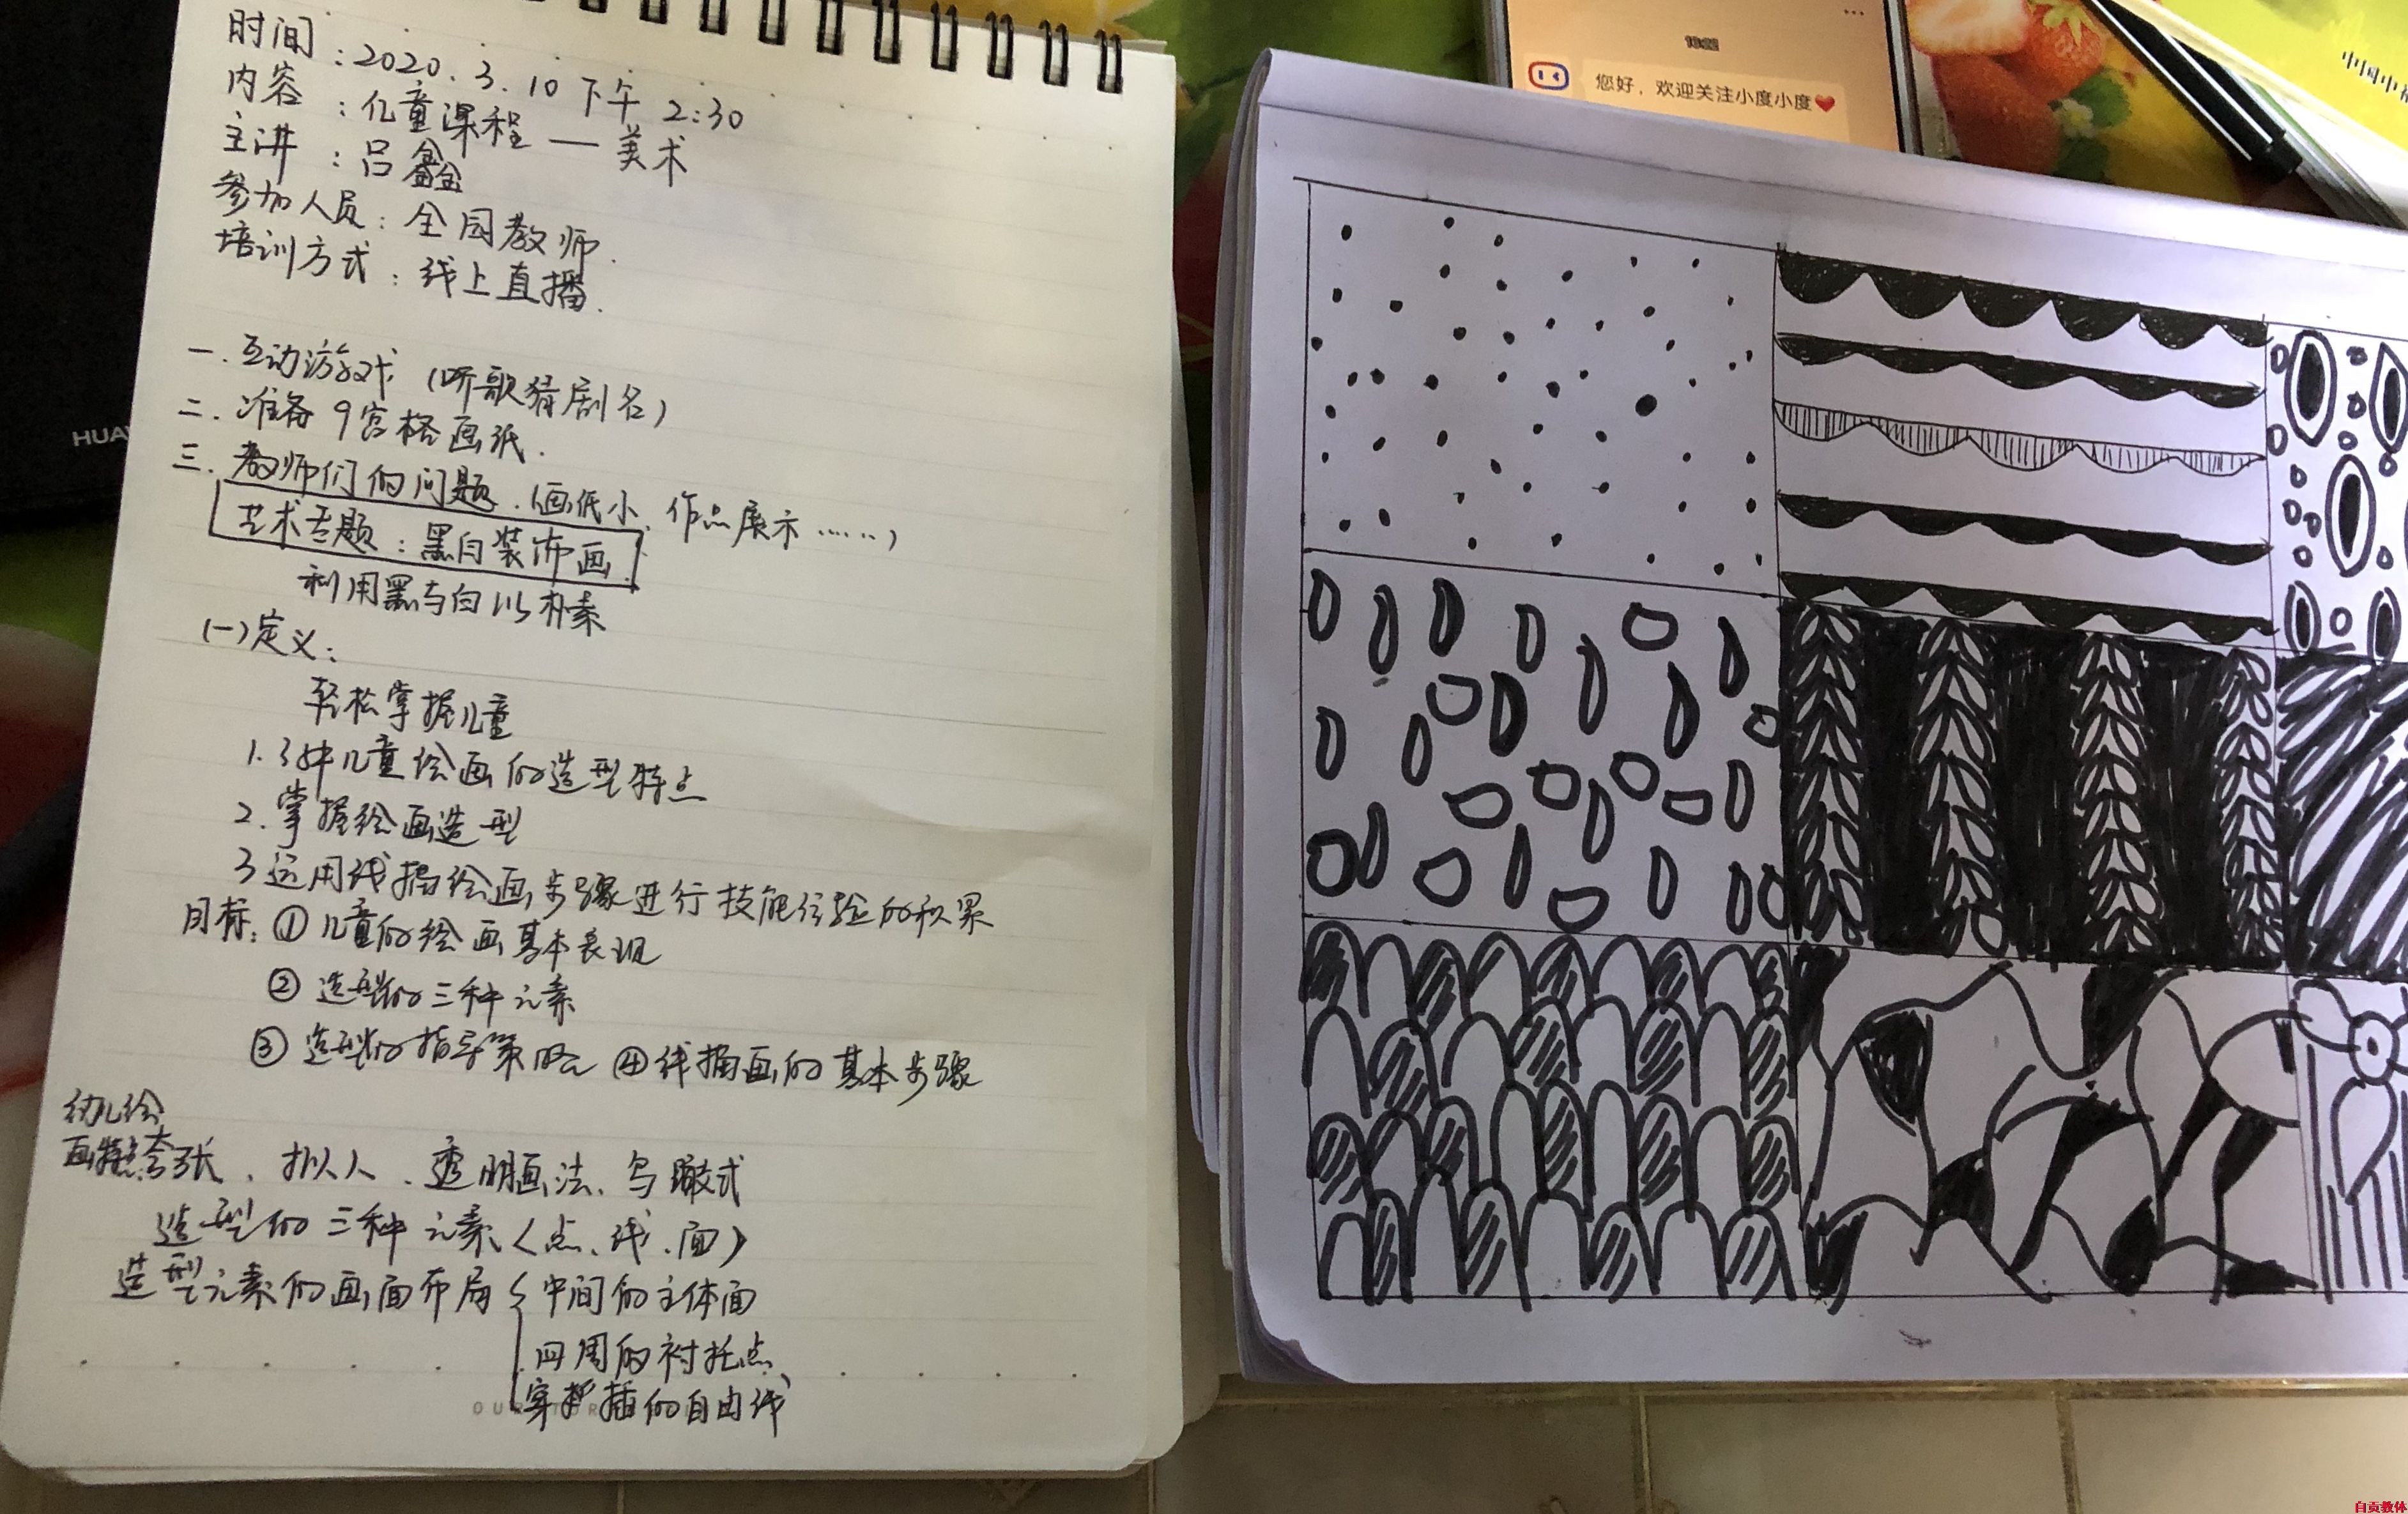 时间:2020.3.10 下午 2:30
内容:儿童课程 — 美术
主讲:吕鑫
参加人员:全国教师.
培训方式:线上直播.
一.互动游戏(听歌猜剧名)
二.准备9宫格画纸.
三.教师们的问题.(画低小、作品展示……)
艺术专题:黑白装饰画
利用黑与白以朴素
(一)定义:
轻松掌握儿童
1.3种儿童绘画的造型特点
2.掌握绘画造型
3运用线描绘画步骤进行技能经验的积累
目标:①儿童的绘画基本表现
②造型的三种元素
③造型的指导策略 ④线描画的基本步骤
幼儿绘
画特点夸张、拟人、透明画法、鸟瞰式
造型的三种元素(点、线、面)
造型元素的画面布局{中间的主体面
四周的衬托点
穿插的自由线
HUAW
16:22
您好,欢迎关注小度小度❤
中国中福
自贡教体